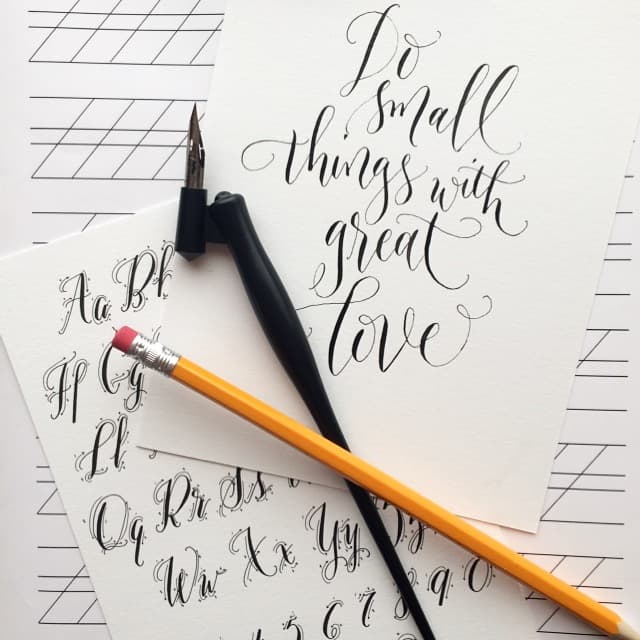 Do
small
things with
great
love
Aa Bb
Ff Gg
Ll
Qq Rr Ss
Ww Xx Yy
5 6 7 8 9 0